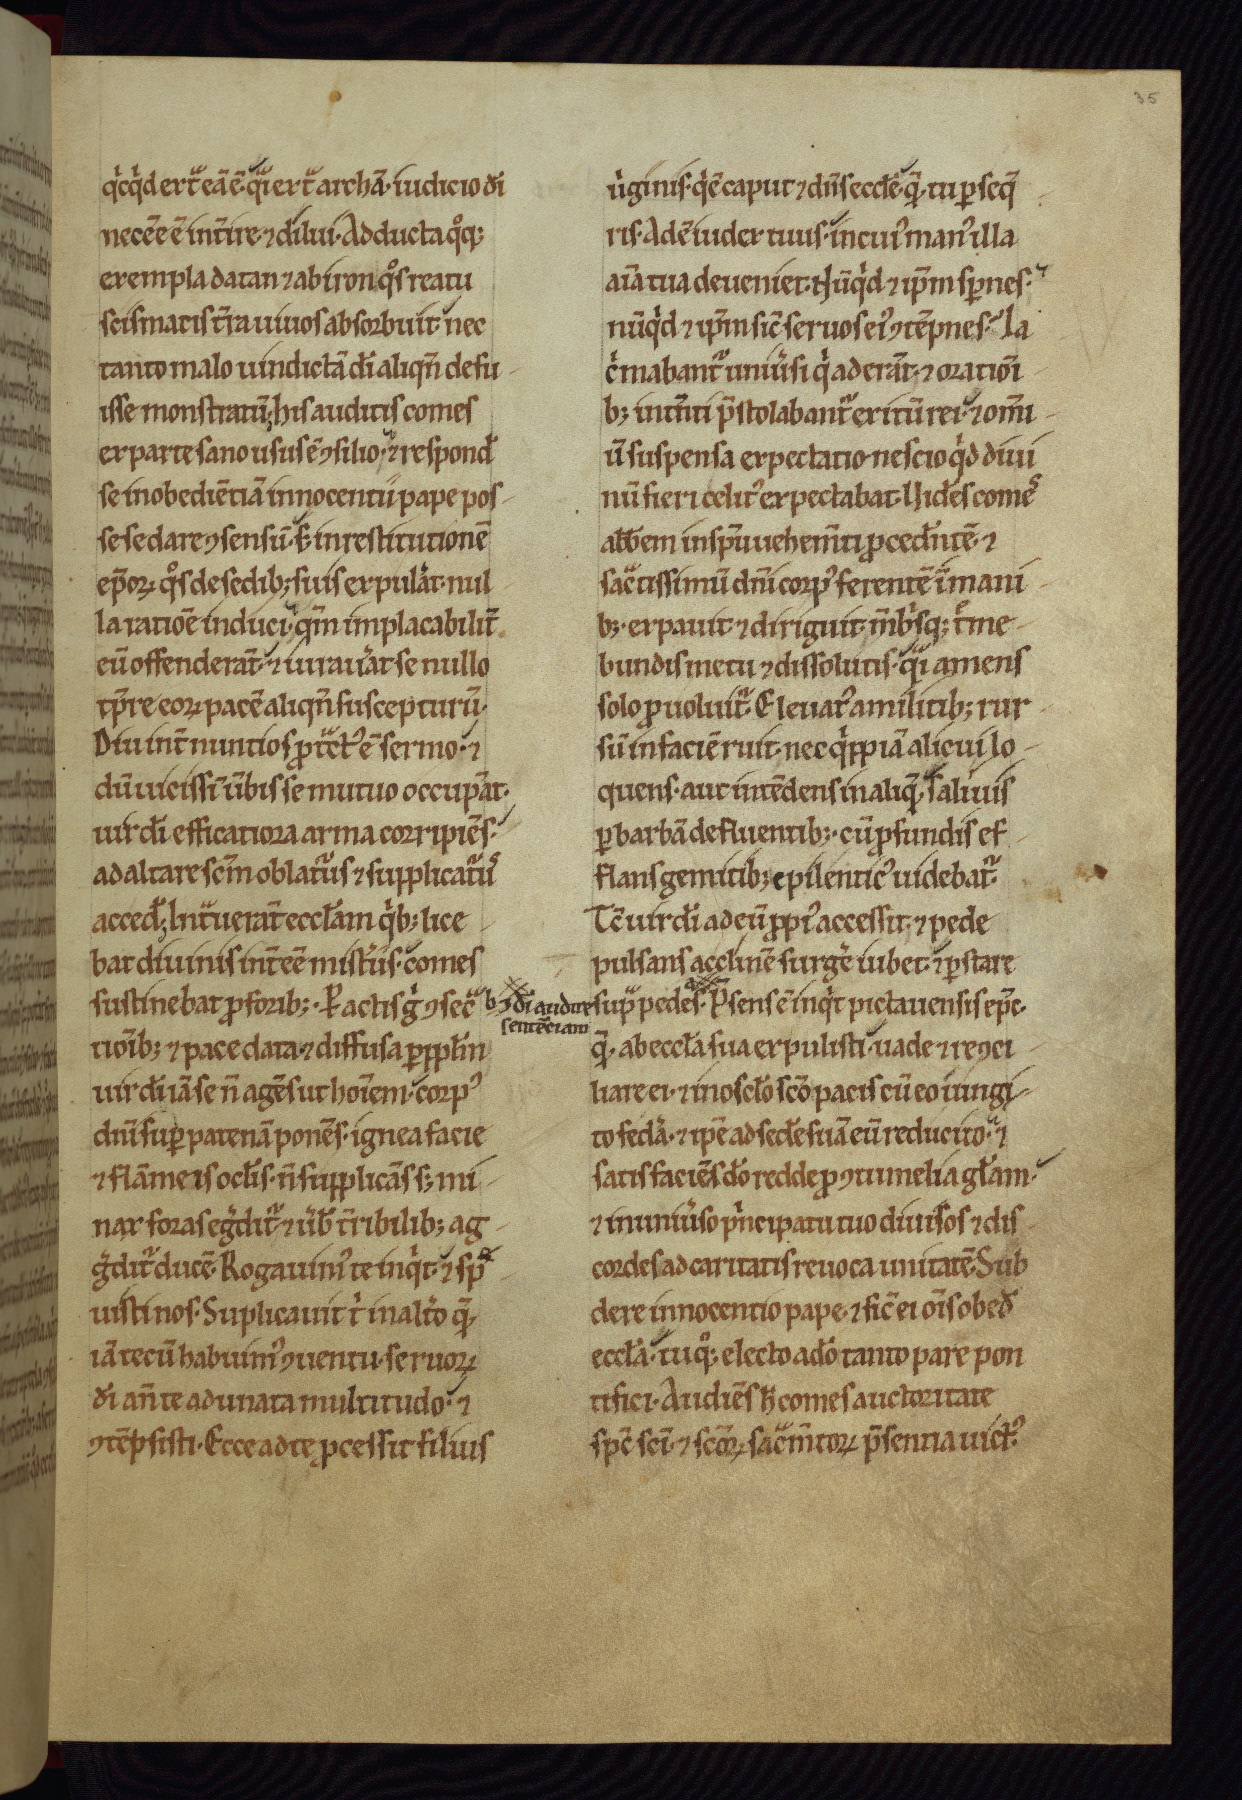 35
qͥcqͥd ext̃ eā ē. qͣsi ext̃ archā. iudicio di
necēe ē int̃ire ⁊ dilui. Adducta qͦq;
exempla datan ⁊ abiron qͦs reatu
scismatis t̃ra uiuos absorbuit. nec
tanto malo uindictā di̅ aliqn̄ defu
isse monstratū; his auditis comes
ex parte sano usus ē ꝯsilio. ⁊ respond̄
se in obediētiā innocentii pape pos
se se dare ꝯsensū. S; in restitutionē
ep̄oꝝ qͦs de sedib; suis expulāt. nul
la ratiōe induci. qm̄ implacabilit̃
eū offenderāt. ⁊ iurauāt se nullo
tp̄re eoꝝ pacē aliqn̄ suscepturū.
Diu int̃ nuntios ꝓtͣctꝰ ē sermo. ⁊
dū uicissī ūbis se mutuo occupāt.
uir di̅ efficatiora arma corripiēs.
ad altare scm̄ oblatūs ⁊ supplicatūs
acced̄; Intͣuerāt eccl̄am qͥb; lice
bat diuinis int̃ēē mist̃iis. comes
sustinebat ꝓ forib;. Ractis g̊ ꝯsecͣ
b; di̅ audire
sentēciam
tiōib; ⁊ pace data ⁊ diffusa ꝑ ppl̄m
uir di̅ iā se n̄ agēs ut hoīem. corpꝰ
dn̄i suꝑ patenā ponēs. ignea facie
⁊ flāmeis oclis. n̄ supplicās s; mi
nax foras eg̊dit̃. ⁊ ūb̄ t̃ribilib; ag
g̊dit̃ ducē. Rogauimꝰ te inqͥt. ⁊ sp̄
uisti nos. Suplicauit tͥ in alt̃o q̄
iā tecū habuimꝰ ꝯuentu. seruoꝝ
di̅ an̄ te adunata multitudo. ⁊
ꝯtēpsisti. Ecce ad te ꝓcessit filius
ūginis. qͥ ē caput ⁊ dn̄s eccl̄e. q̄ tu ꝑseq̄
ris. Adē iudex tuus. in cuiꝰ manꝰ illa
aīa tua deueniet. Nūqͥd ⁊ ip̄m spnes.
nūqͥd ⁊ ip̄m sic̄ seruos eiꝰ ꝯtēpnes. La
cͥmabant̃ uniūsi qͥ aderāt. ⁊ oratiōi
b; intn̄ti p̄stolabant̃ exitū rei. ⁊ omī
ū suspensa expectatio nescio qͥd diui
nū fieri celitꝰ expectabat. Uides comes
abb̄em in spū uehem̄ti ꝓced̄ntē. ⁊
sacͣtissimū dn̄i corpꝰ ferentē ī mani
b;. expauit ⁊ diriguit. mb̄rsq; tͥme
bundis metu ⁊ dissolutis. qͣsi amens
solo ꝓuoluit̃. Eleuatꝰ a militib; rur
sū in faciē ruit. nec qͥppiā alicui lo
quens. aut intēdens in aliq̄. saliuis
ꝑ barbā defluentib;. cū ꝓfundis ef
flans gemitib; epilenticꝰ uidebat̃.
Tc̄ uir di̅ ad eū ꝓpiꝰ accessit. ⁊ pede
pulsans acclinē surg̊e iubet. ⁊ ꝑstare
supͣ pedes. P̄sens ē inqͥt pictauensis ep̄c.
q̄ ab eccl̄a sua expulisti. uade ⁊ reꝯci
liare ei. ⁊ in osclō scō pacis cū eo iungi
to fedͣa. ⁊ ip̄e ad sedē suā eū reducito. ⁊
satisfaciēs dō redde ꝓ ꝯtumelia gl̄am.
⁊ in uniūso pͥncipatu tuo diuisos ⁊ dis
cordes ad caritatis reuoca unitatē. Sub
dere innocentio pape. ⁊ sic̄ ei oīs obed̄
eccl̄a. tu qͦ; electo a dō tanto pare pon
tifici. Audiēs h̄ comes auctoritate
spc̄ sci̅. ⁊ scōꝝ sacͣm̄toꝝ p̄sentia uictꝰ